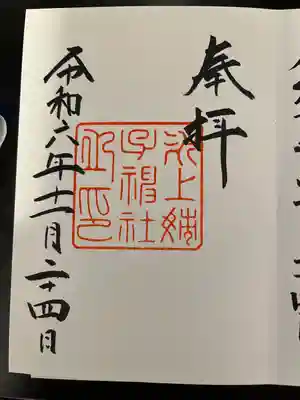 奉拝
氷上姉
子神社
令和六年十一月二十四日